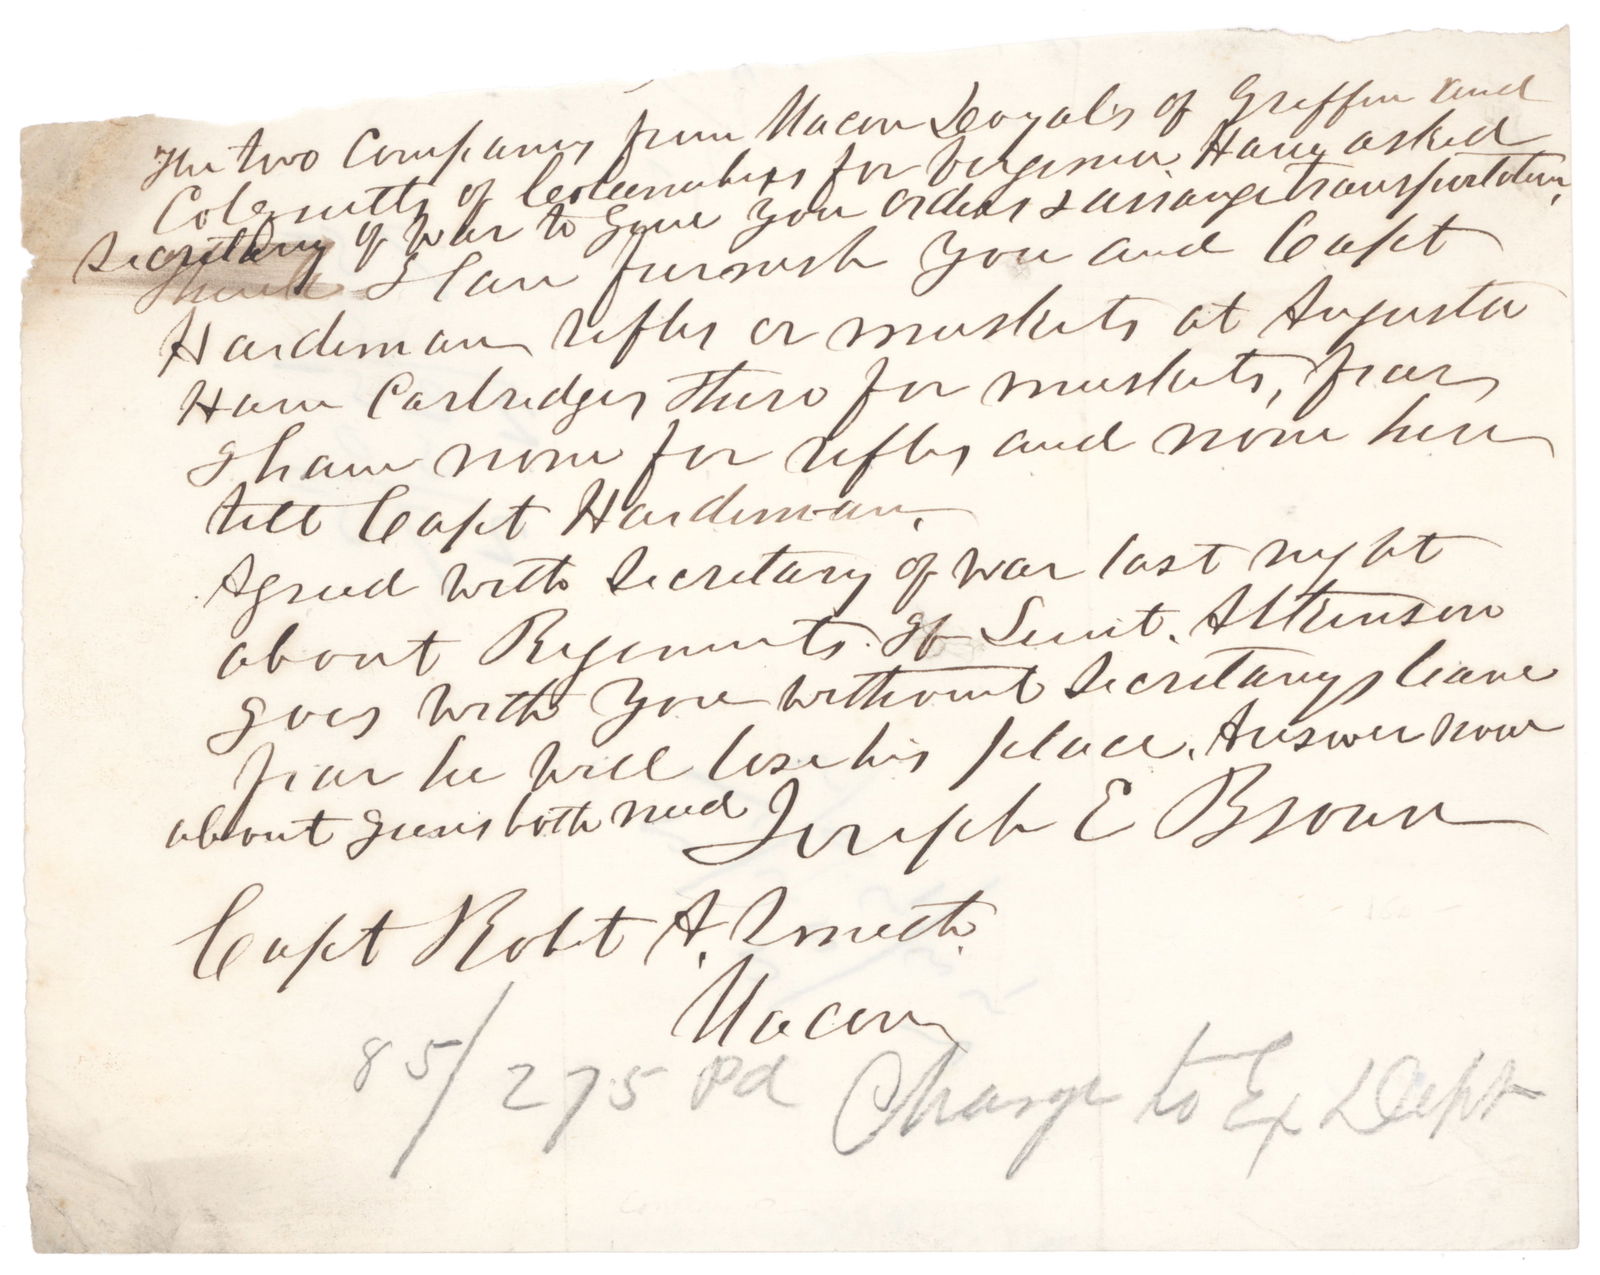 The two Companies from Macon Loyals of Griffin and
Colquitts of Columbus for Virginia Have asked
Secretary of War to give you orders & arrange transportation,
think I can furnish you and Capt
Hardeman rifles or muskets at Augusta
Have Cartridges there for muskets, fear
I have none for rifles and none here
tell Capt Hardeman,
Agreed with Secretary of War last night
about Regiments. If Lieut. Atkinson
goes with you without Secretarys leave
fear he will lose his place. Answer now
about guns both need Joseph E Brown
Capt Robt A. Smith.
Macon
85/275 Pd Charge to Ex Dept